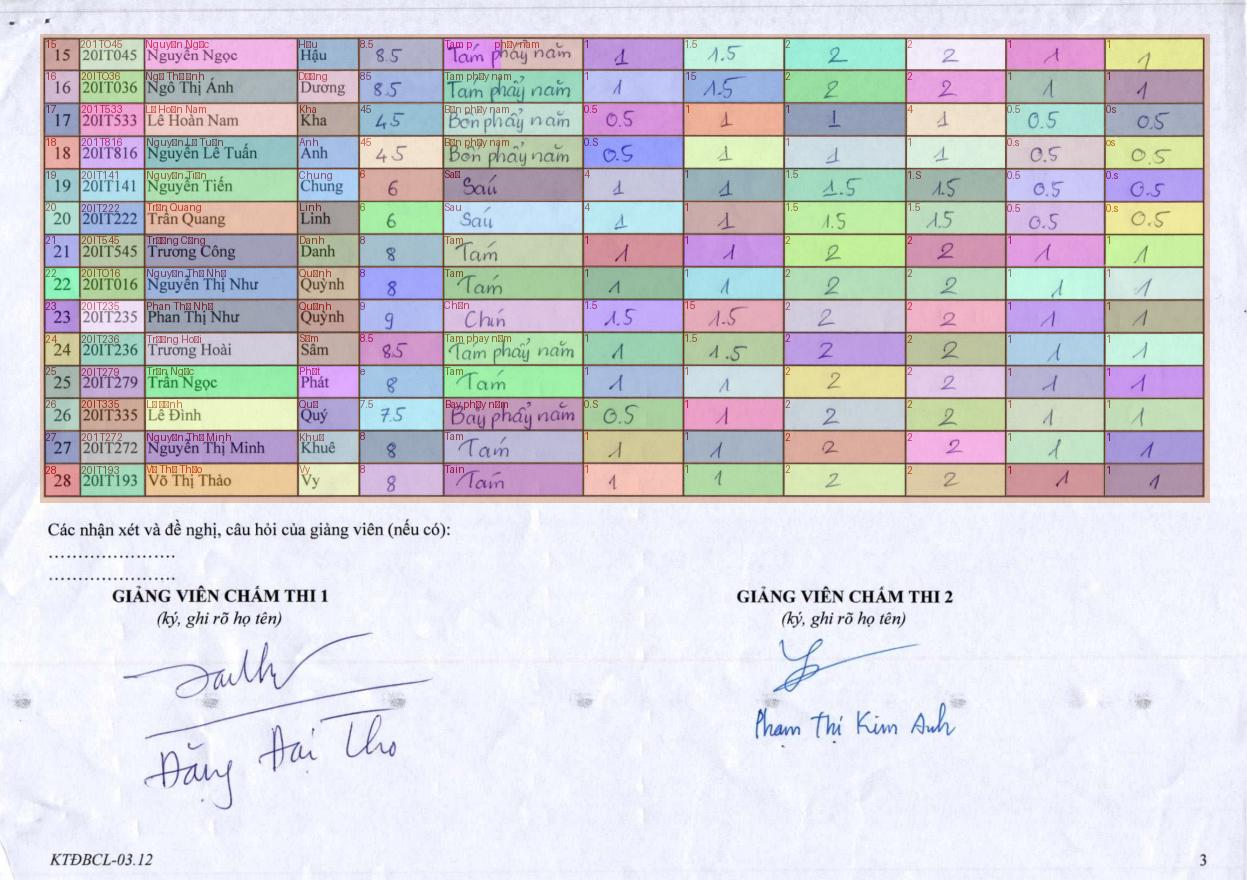 15 20IT045 Nguyễn Ngọc Hậu 8.5 Tám phẩy năm 1 1.5 2 2 1 1
16 20IT036 Ngô Thị Ánh Dương 8.5 Tam phẩy năm 1 1.5 2 2 1 1
17 20IT533 Lê Hoàn Nam Kha 4.5 Bốn phẩy năm 0.5 1 1 1 0.5 0.5
18 20IT816 Nguyễn Lê Tuấn Anh 4.5 Bốn phẩy năm 0.5 1 1 1 0.5 0.5
19 20IT141 Nguyễn Tiến Chung 6 Saú 1 1 1.5 1.5 0.5 0.5
20 20IT222 Trần Quang Linh 6 Saú 1 1 1.5 1.5 0.5 0.5
21 20IT545 Trương Công Danh 8 Tám 1 1 2 2 1 1
22 20IT016 Nguyễn Thị Như Quỳnh 8 Tám 1 1 2 2 1 1
23 20IT235 Phan Thị Như Quỳnh 9 Chín 1.5 1.5 2 2 1 1
24 20IT236 Trương Hoài Sâm 8.5 Tam phẩy năm 1 1.5 2 2 1 1
25 20IT279 Trần Ngọc Phát 8 Tám 1 1 2 2 1 1
26 20IT335 Lê Đình Quý 7.5 Bảy phẩy năm 0.5 1 2 2 1 1
27 20IT272 Nguyễn Thị Minh Khuê 8 Tám 1 1 2 2 1 1
28 20IT193 Võ Thị Thảo Vy 8 Tám 1 1 2 2 1 1
Các nhận xét và đề nghị, câu hỏi của giảng viên (nếu có):
.......................
.......................
GIẢNG VIÊN CHẤM THI 1 GIẢNG VIÊN CHẤM THI 2
(ký, ghi rõ họ tên) (ký, ghi rõ họ tên)
Đặng Đại Thọ Phạm Thị Kim Anh
KTĐBCL-03.12 3